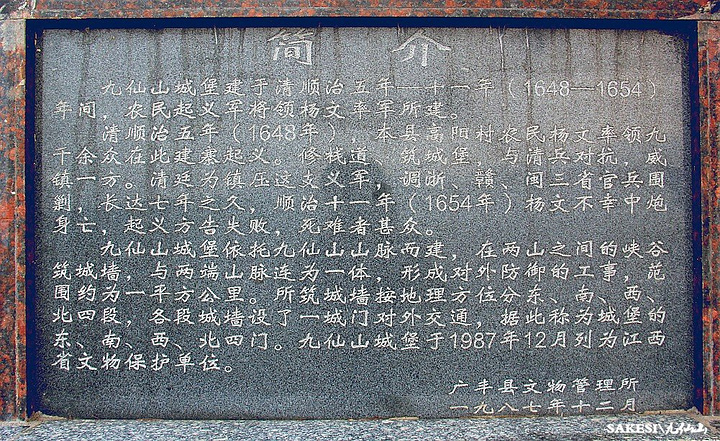 简介
九仙山城堡建于清顺治五年—十一年（1648—1654）
年间，农民起义军将领杨文率军所建。
清顺治五年（1648年），本县高阳村农民杨文率领九
千余众在此建寨起义。修栈道、筑城堡，与清兵对抗，威
镇一方。清廷为镇压这支义军，调浙、赣、闽三省官兵围
剿，长达七年之久，顺治十一年（1654年）杨文不幸中炮
身亡，起义方告失败，死难者甚众。
九仙山城堡依托九仙山山脉而建，在两山之间的峡谷
筑城墙，与两端山脉连为一体，形成对外防御的工事，范
围约为一平方公里。所筑城墙按地理方位分东、南、西、
北四段，各段城墙设了一城门对外交通，据此称为城堡的
东、南、西、北四门。九仙山城堡于1987年12月列为江西
省文物保护单位。
广丰县文物管理所
一九八七年十二月
SAKESI\九仙山